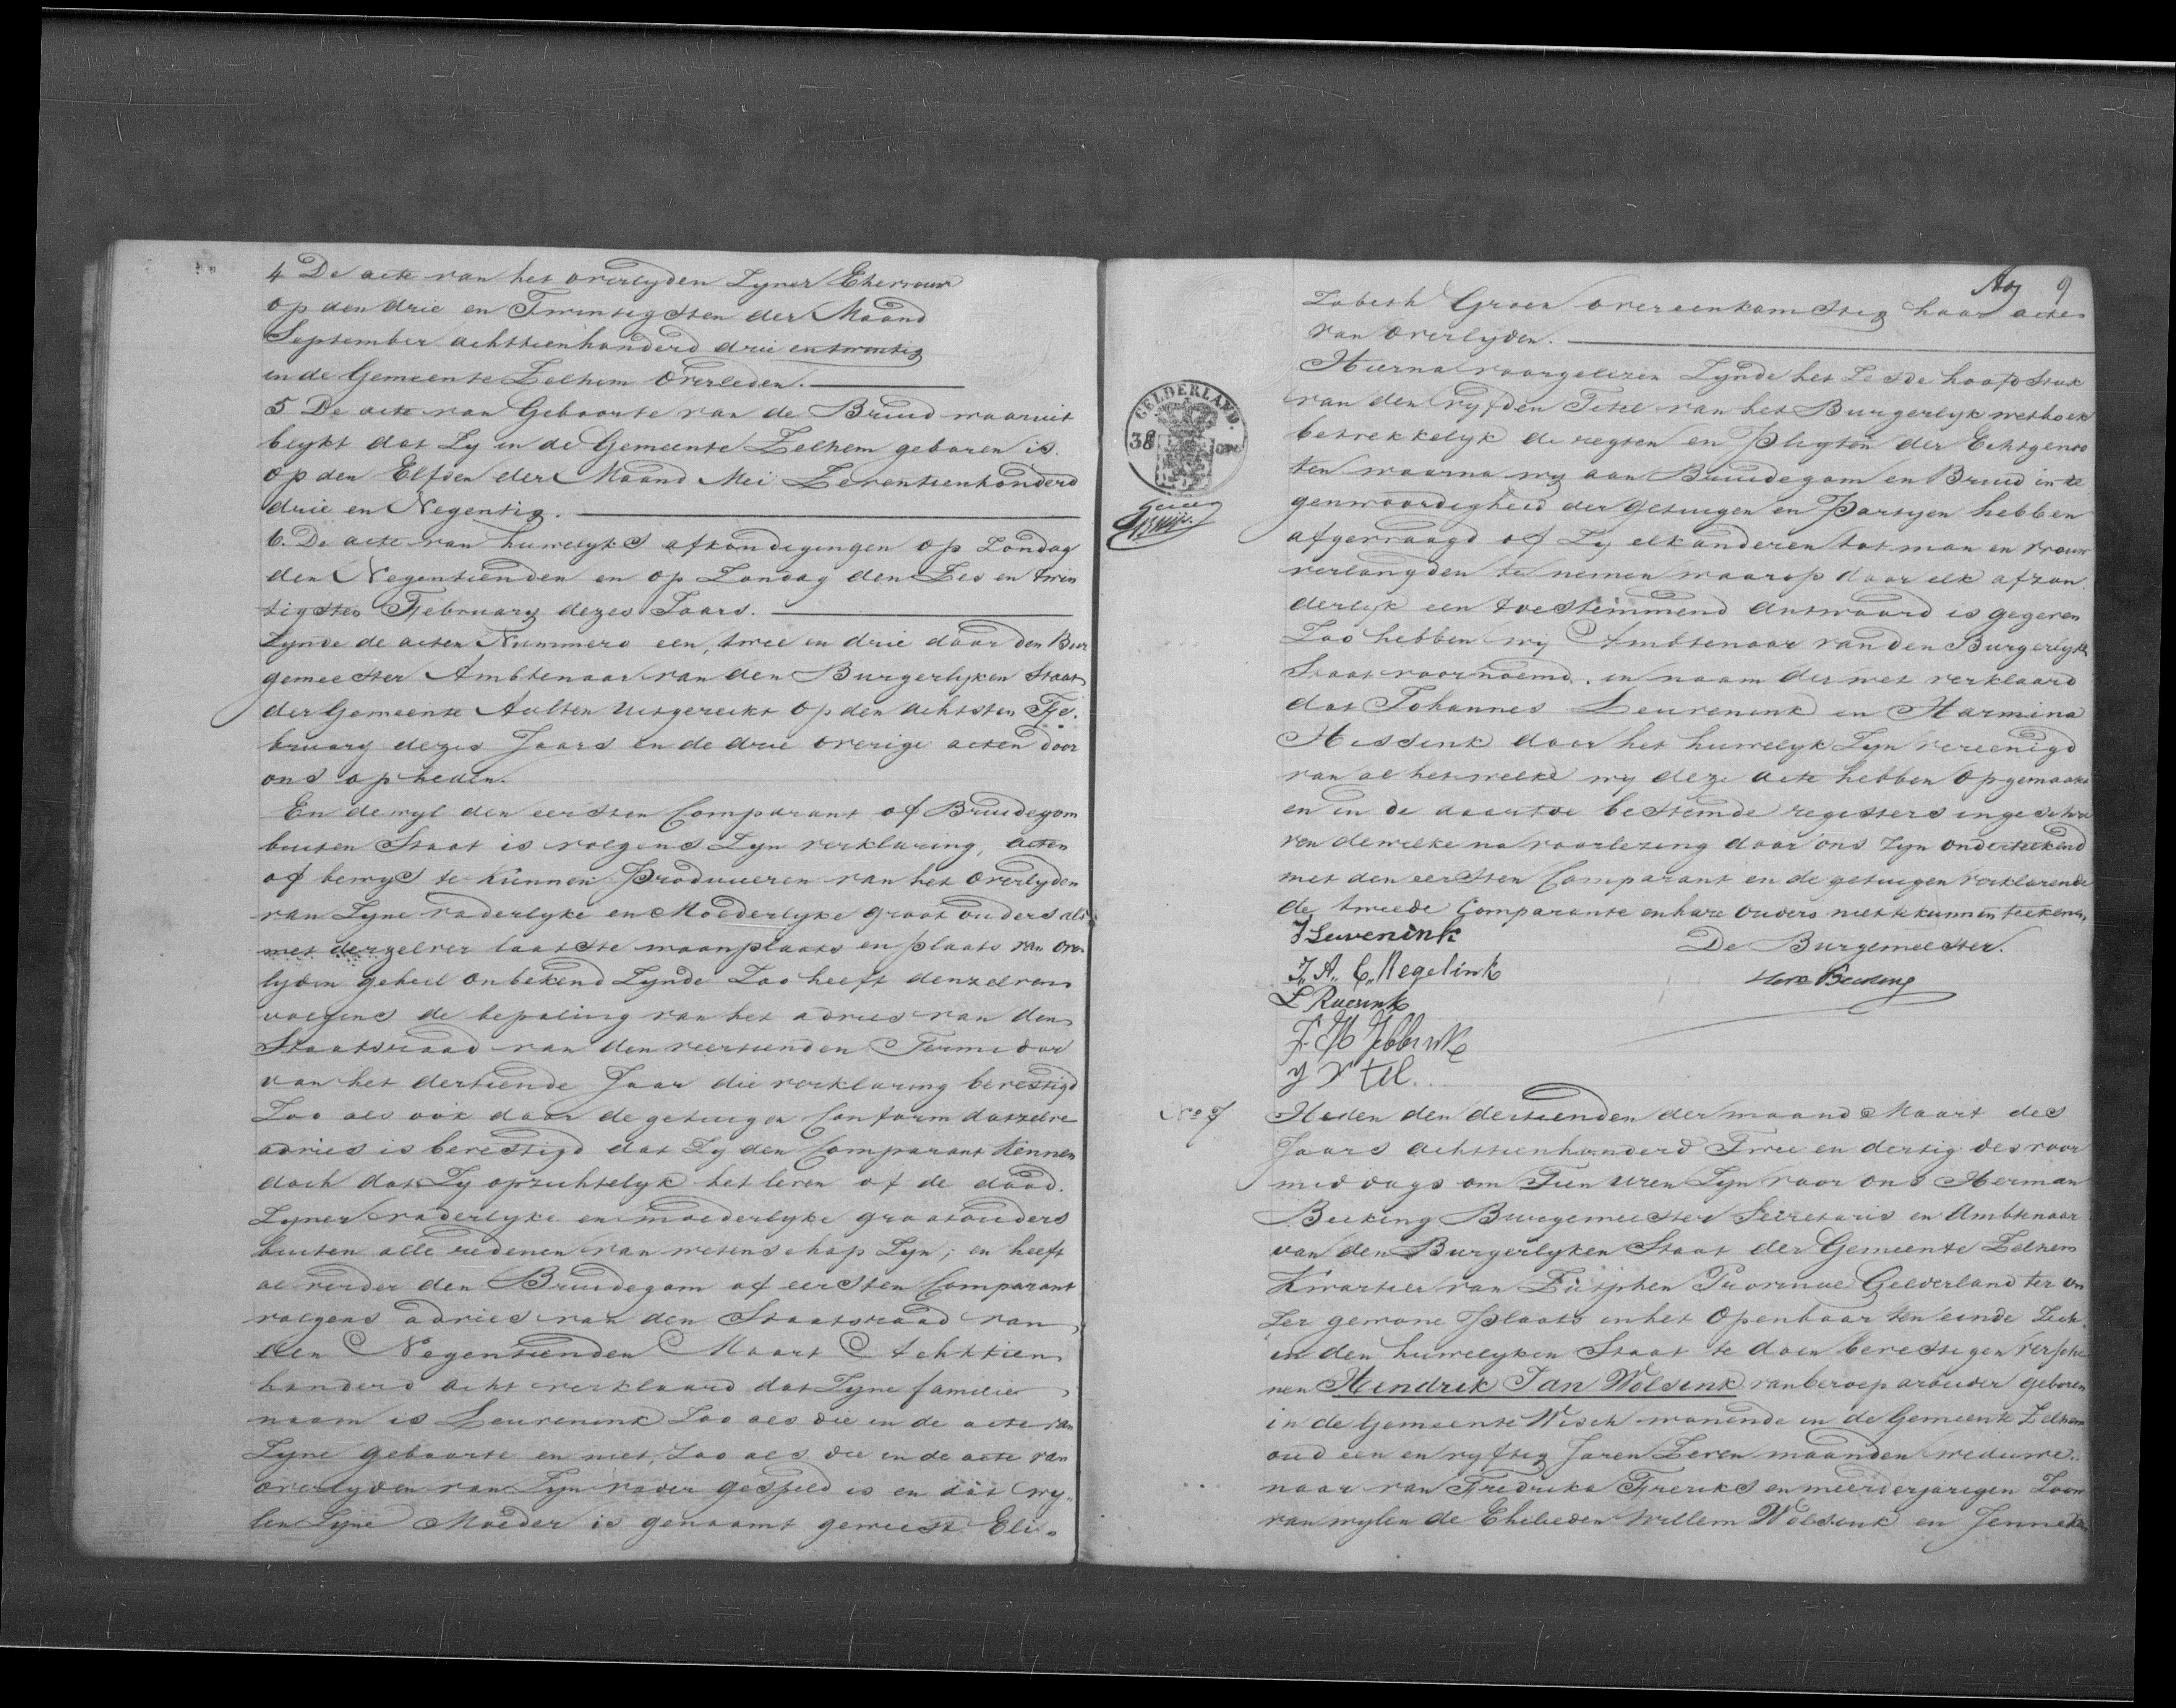 4 De acte van het overlyden Zyner Ehevrouw
op den drie en Twintigsten der Maand
September achttienhonderd drie en twintig
in de Gemeente Zelhem Overleden.
5 De acte van Geboorte van de Bruid waaruit
blykt dat Zy in de Gemeente Zelhem geboren is
op den Elfden der Maand Mei Zeventienhonderd
drie en Negentig.
6. De acte van huwelyks afkondigingen op Zondag
den Negentienden en op Zondag den Zes en twin
tigsten February dezes Jaars.
Zynde de acten Nummero een, twee en drie door den Bur
gemeester Ambtenaar van den Burgerlyken Staat
der Gemeente Aalten uitgereikt op den achtsten Fe.
bruary dezes Jaars en de drie overige acten door
ons op heden.
En dewyl den eersten Comparant of Bruidegom
buiten Staat is volgens Zyn verklaring, acten
of bewys te kunnen Produceren van het Overlyden
van Zyne vaderlyke en Moederlyke groot ouders als
met derzelver laatste woonplaats en plaats van over
lyden geheel onbekend Zynde Zoo heeft denzelven
volgens de bepaling van het advies van den
Staatsraad van den veertienden Termidor
van het dertiende Jaar die verklaring bevestigd
Zoo als ook door de getuigen Conform datzelve
advies is bevestigd dat Zy den Comparant kennen
doch dat Zy opzichtelyk het leven of de dood
Zyner vaderlyke en moederlyke grootouders
buiten alle redenen van wetenschap Zyn; en heeft
al verder den Bruidegom of eersten Comparant
volgens advies van den Staatsraad van
den Negentienden Maart Achttien
honderd acht verklaard dat Zyne familie
naam is Leuvenink Zoo als die in de acte van
Zyne geboorte en niet, Zoo als die in de acte van
overlyden van Zyn vader gespeld is en dat wy„
len Zyne Moeder is genaamt geweest Eli„
9
Zabeth Groen overeenkomstig haar acte
van Overlyden.
Hierna voorgelezen Zynde het Zesde hoofdstuk
van den vyfden Titel van het Burgerlyk wetboek
betrekkelyk de regten en Pligten der Echtgenoo
ten waarna wy aan Bruidegom en Bruid in te
genwoordigheid der getuigen en Partyen hebben
afgevraagd of Zy elkanderen tot man en vrouw
verlangden te nemen waarop door elk afzon
derlyk een toestemmend antwoord is gegeven
Zoo hebben wy Ambtenaar van den Burgerlyke
Staat voornoemd. in naam der wet verklaard
dat Johannes Leuvenink en Harmina
Hissink door het huwelyk Zyn vereenigd
van al hetwelke wy deze acte hebben opgemaakt
en in de daartoe bestemde registers ingeschre
ven dewelke na voorlezing door ons Zyn onderteekend
met den eersten Comparant en de getuigen verklarende
de tweede Comparante en hare ouders niet te kunnen teekenen
GELDERLAND.
38
J Leuvenink
De Burgemeester.
J. A. C. Regelink
Herm Beeking
L Ruesink
No 7
Heden den dertienden der maand Maart des
Jaars achttienhonderd Twee en dertig des voor
middags om Tien uren Zyn voor ons Herman
Beeking Burgemeester Secretaris en Ambtenaar
van den Burgerlyken Staat der Gemeente Zelhem
Kwartier van Zutphen Provincie Gelderland ter on
Zer gewone Plaats in het Openbaar ten einde Zich
in den huwelyken Staat te doen bevestigen Versche
nen Hendrik Jan Wolsink van beroep arbeider geboren
in de Gemeente Wisch wonende in de Gemeente Zelhem
oud een en vyftig Jaren Zeven maanden weduwe„
naar van Fredrika Freriks en meerderjarigen Zoon
van wylen de Ehelieden Willem Wolsink en Jenneken